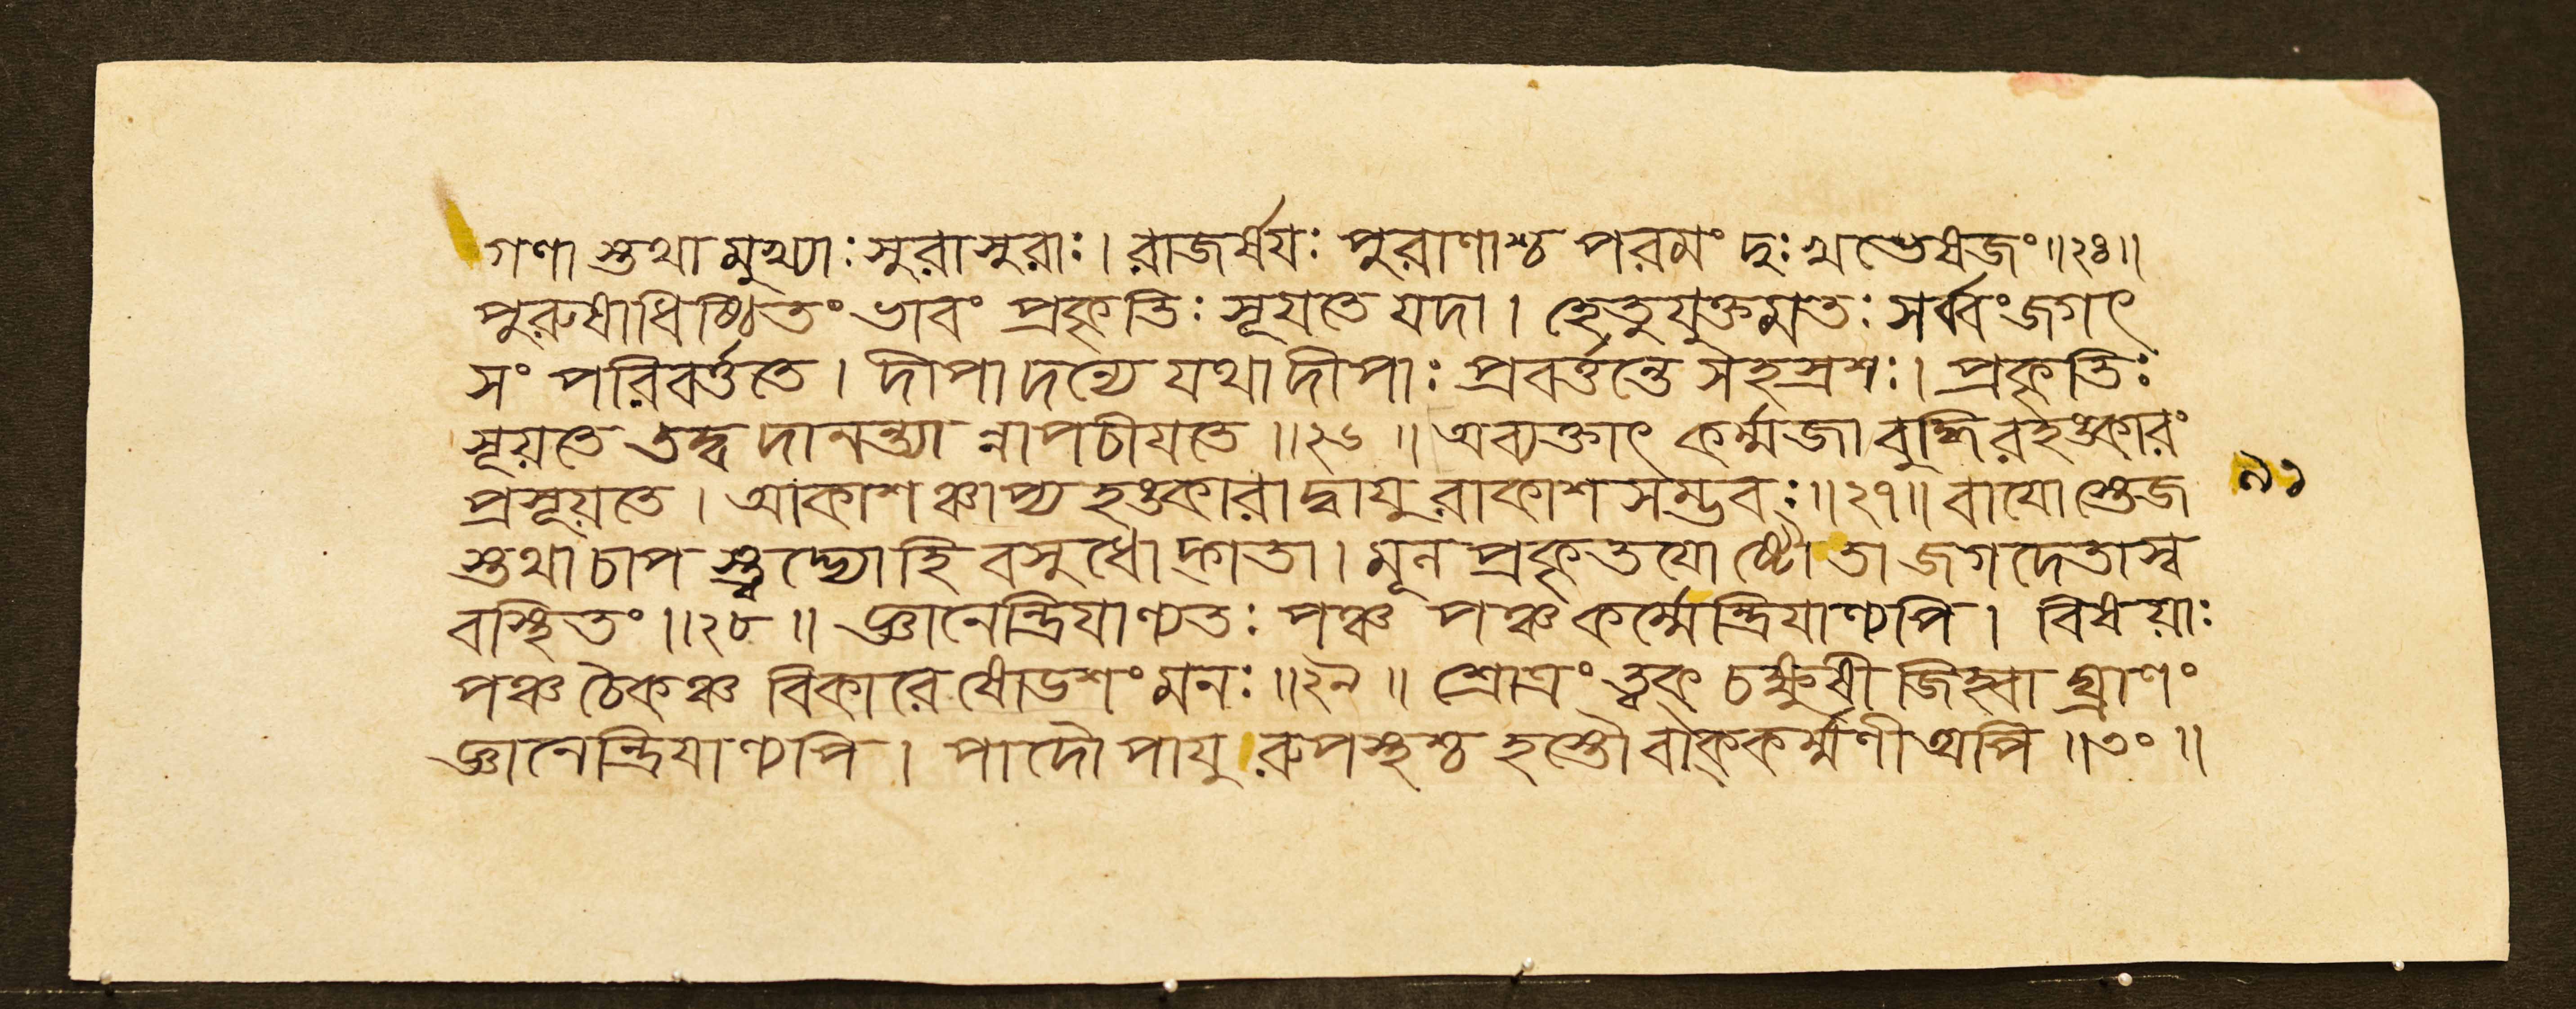 গণা স্তথা মুখ্যাঃ সুরাসুরাঃ। রাজর্ষযঃ পুরাণাশ্চ পরমং দুঃখভেষজং॥২৪॥
পুরুষাধিষ্ঠিতং ভাবং প্রকৃতিঃ সূযতে যদা। হেতুযুক্তমতঃ সর্ব্বং জগৎ
সং পরিবর্ত্ততে। দীপাদন্যে যথা দীপাঃ প্রবর্ত্তন্তে সহস্রশঃ। প্রকৃতিঃ
সূয়তে তদ্ব দানন্ত্যা ন্নাপচীযতে॥২৬॥ অব্যক্তাৎ কর্ম্মজা বুদ্ধিরহঙ্কারং
প্রসূয়তে। আকাশঞ্চাপ্য হঙ্কারাদ্বাযু রাকাশসম্ভবঃ॥২৭॥ বাযোস্তেজ
স্তথা চাপ স্ত্বদ্ভ্যোহি বসুধোদ্গতা। মূল প্রকৃতযোষ্টৌতা জগদেতাস্ব
বস্থিতং॥২৮॥ জ্ঞানেন্দ্রিযাণ্যতঃ পঞ্চ পঞ্চকর্ম্মেন্দ্রিযাণ্যপি। বিষয়াঃ
পঞ্চ চৈকঞ্চ বিকারে ষোডশং মনঃ॥২৯॥ শ্রোত্রং ত্বক্ চক্ষুষী জিহ্বা ঘ্রাণং
জ্ঞানেন্দ্রিযাণ্যপি। পাদৌ পাযু রুপস্থশ্চ হস্তৌ বাক্কর্ম্মণী অপি॥৩০॥
৯১